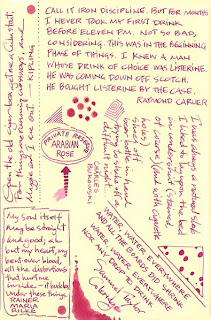 CALL IT IRON DISCIPLINE. BUT FOR MONTHS
I NEVER TOOK MY FIRST DRINK
BEFORE ELEVEN P.M. NOT SO BAD,
CONSIDERING. THIS WAS IN THE BEGINNING
PHASE OF THINGS. I KNEW A MAN
WHOSE DRINK OF CHOICE WAS LISTERINE.
HE WAS COMING DOWN OFF SCOTCH.
HE BOUGHT LISTERINE BY THE CASE.
RAYMOND CARVER
KIPLING
PRIVATE RESERVE
ARABIAN
ROSE
I was always a natural slob
I liked to lay upon the bed
in undershirt (stained,
of course) (and with cigarette
holes)
shoes off
beer bottle in hand
trying to shake off a
difficult night
BUKOWSKI
My soul itself
may be straight
and good; ah
but my heart, my
bent-over blood,
all the distortions
that hurt me
inside - it buckles
under these things.
RAINER
MARIA
RILKE
WATER, WATER, EVERYWHERE
AND ALL THE BOARDS DID SHRINK
WATER, WATER EVERYWHERE
NOR ANY DROP TO DRINK
Samuel Taylor
Coleridge